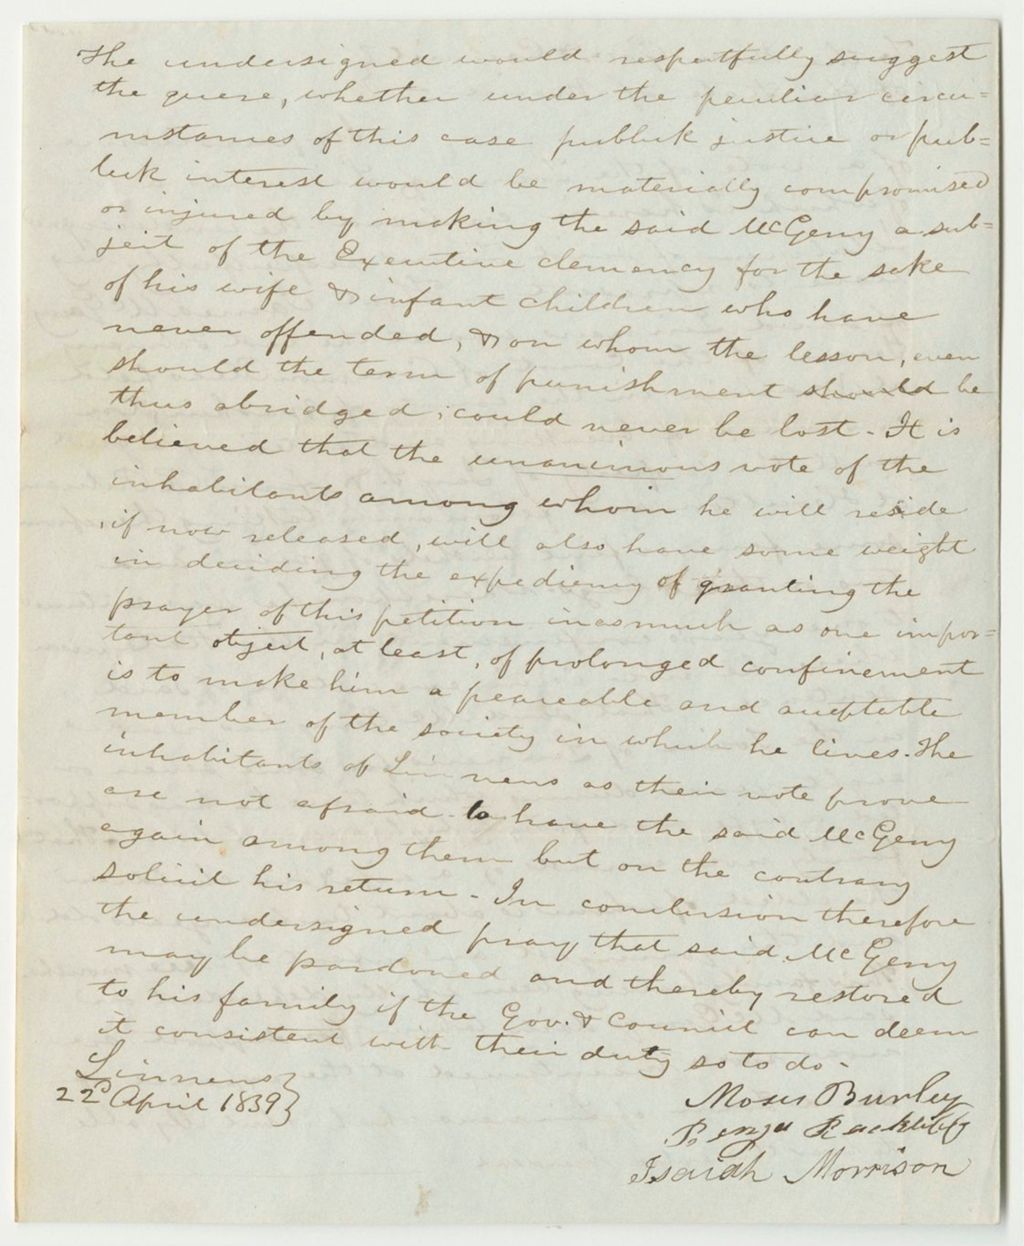 The undersigned would respectfully suggest
the quere, whether under the peculiar circu=
mstances of this case publick justice or pub=
lick interest would be materially compromised
or injured by making the said McGeny a sub=
ject of the Executive clemency for the sake
of his wife & infant children who have
never offended, & on whom the lesson, even
should the term of punishment should be
thus abridged, could never be lost. It is
believed that the unanimous vote of the
inhabitants among whom he will reside
, if now released, will also have some weight
in deciding the expediency of granting the
prayer of this petition inasmuch as one impor=
tant object, at least, of prolonged confinement
is to make him a peaceable and acceptable
member of the society in which he lives. The
inhabitants of Linneus as their vote prove
are not afraid to have the said McGeny
again among them but on the contrary
solicit his return - In conclusion therefore
the undersigned pray that said McGeny
may be pardoned and thereby restored
to his family if the Gov. & Council can deem
it consistent with their duty so to do -
Linneus }
22d April 1839 }
Moses Burley
Benja Rackliff
Isaiah Morrison